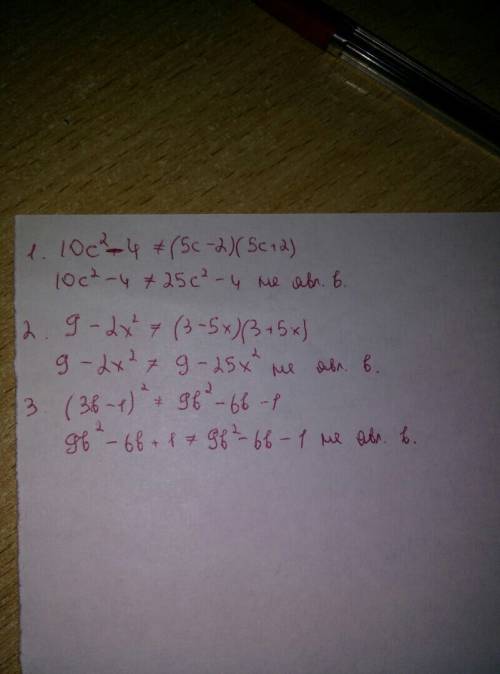 1. 10c² - 4 ≠ (5c-2)(5c+2)
10c² - 4 ≠ 25c² - 4 не явл. в.
2. 9 - 2x² ≠ (3-5x)(3+5x)
9 - 2x² ≠ 9 - 25x² не явл. в.
3 (3b-1)² ≠ 9b² - 6b - 1
9b² - 6b + 1 ≠ 9b² - 6b - 1 не явл. в.